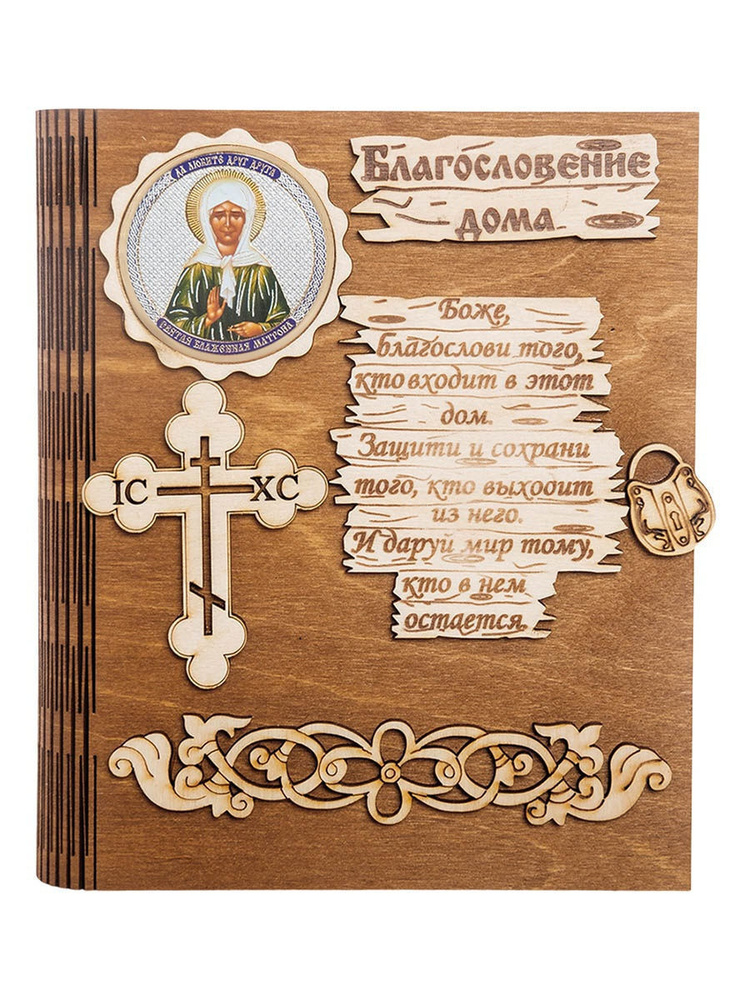 ДА ЛЮБИТЕ ДРУГ ДРУГА
СВЯТАЯ БЛАЖЕННАЯ МАТРОНА
Благословение
дома
IC XC
Боже,
благослови того,
кто входит в этот
дом.
Защити и сохрани
того, кто выходит
из него.
И даруй мир тому,
кто в нем
остается.